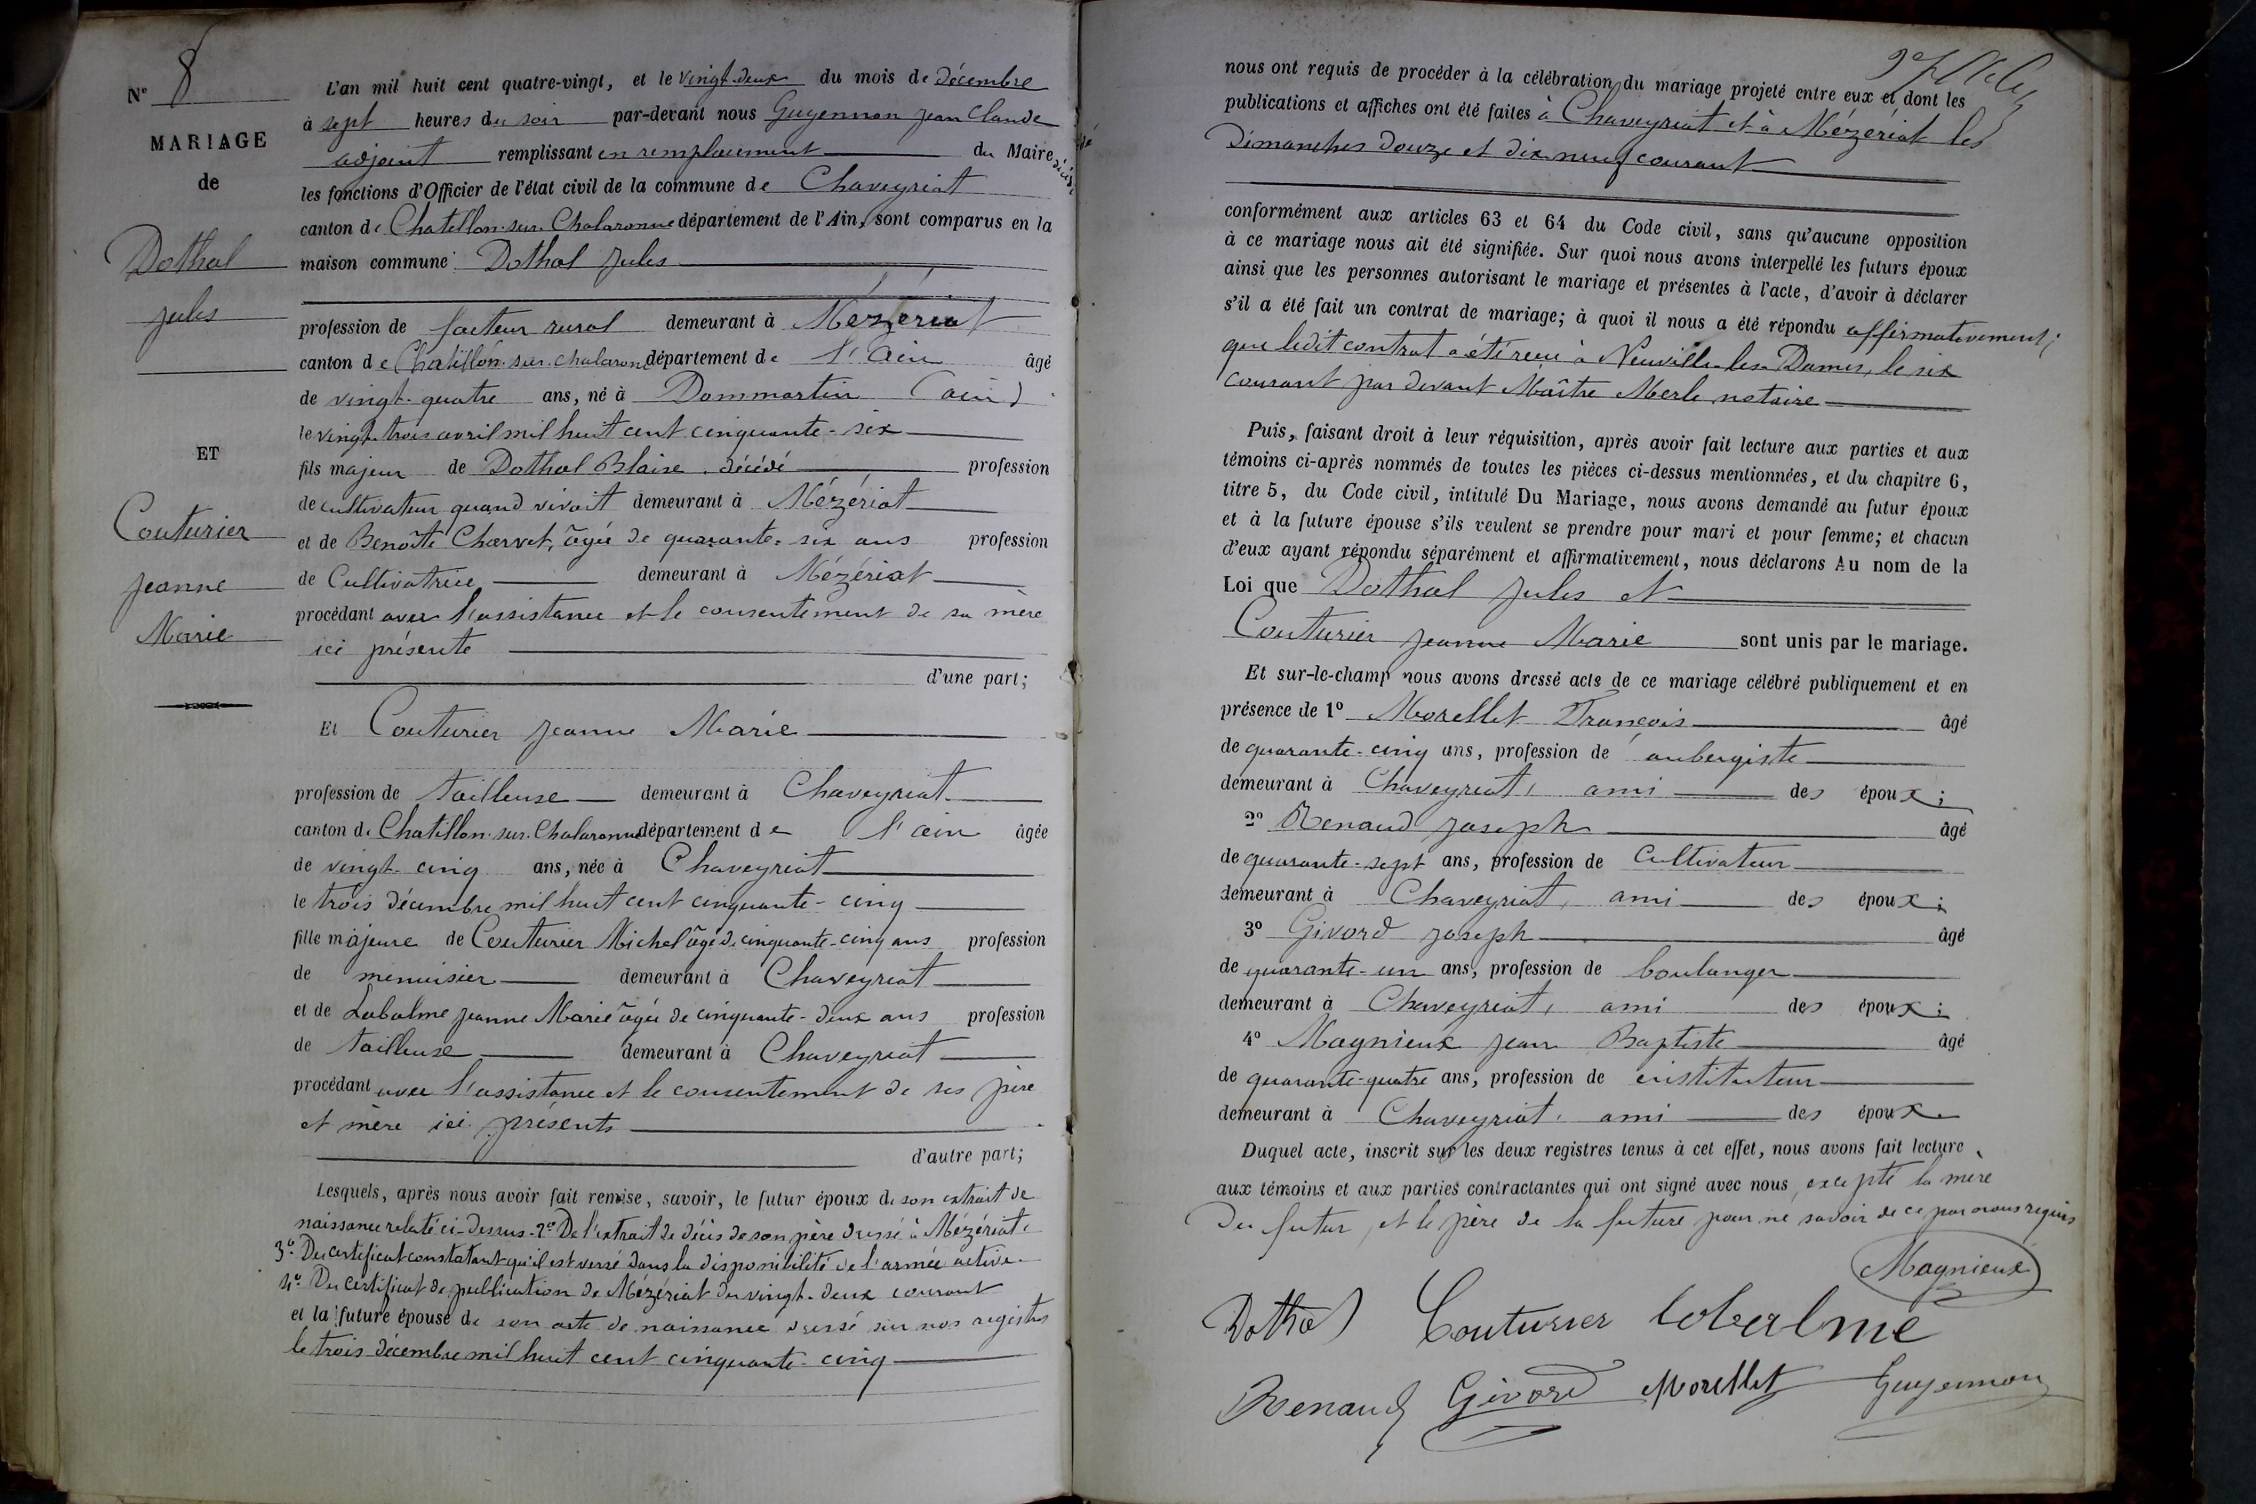 N° 8
MARIAGE
de
Dothal
Jules
ET
Couturier
Jeanne
Marie
L'an mil huit cent quatre-vingt, et le vingt-deux du mois de décembre
à sept heures du soir par-devant nous Guyennon Jean Claude
adjoint remplissant en remplacement du Maire décédé
les fonctions d'Officier de l'état civil de la commune de Chaveyriat
canton de Chatillon-sur-Chalaronne département de l'Ain, sont comparus en la
maison commune Dothal Jules
profession de facteur rural demeurant à Mézériat
canton de Chatillon-sur-chalaronne département de l'Ain âgé
de vingt-quatre ans, né à Dommartin (ain)
le vingt-trois avril mil huit cent cinquante-six
fils majeur de Dothal Blaise, décédé profession
de cultivateur quand vivait demeurant à Mézériat
et de Benoîte Charvet, âgée de quarante-six ans profession
de Cultivatrice demeurant à Mézériat
procédant avec l'assistance et le consentement de sa mère
ici présente
d'une part;
Et Couturier Jeanne Marie
profession de tailleuse demeurant à Chaveyriat
canton de Chatillon-sur-Chalaronne département de l'ain âgée
de vingt-cinq ans, née à Chaveyriat
le trois décembre mil huit cent cinquante-cinq
fille majeure de Couturier Michel âgé de cinquante-cinq ans profession
de menuisier demeurant à Chaveyriat
et de Labalme Jeanne Marie âgée de cinquante-deux ans profession
de tailleuse demeurant à Chaveyriat
procédant avec l'assistance et le consentement de ses père
et mère ici présents
d'autre part;
Lesquels, après nous avoir fait remise, savoir, le futur époux de son extrait de
naissance relaté ci-dessus. 2° De l'extrait de décès de son père dressé à Mézériat.
3° Du certificat constatant qu'il est versé dans la disponibilité de l'armée active.
4° Du certificat de publication de Mézériat du vingt-deux courant
et la future épouse de son acte de naissance dressé sur nos registres
le trois décembre mil huit cent cinquante-cinq
nous ont requis de procéder à la célébration du mariage projeté entre eux et dont les
publications et affiches ont été faites à Chaveyriat et à Mézériat les
Dimanches douze et dix-neuf courant
conformément aux articles 63 et 64 du Code civil, sans qu'aucune opposition
à ce mariage nous ait été signifiée. Sur quoi nous avons interpellé les futurs époux
ainsi que les personnes autorisant le mariage et présentes à l'acte, d'avoir à déclarer
s'il a été fait un contrat de mariage; à quoi il nous a été répondu affirmativement;
que ledit contrat a été reçu à Neuville-les-Dames, le six
courant par devant Maître Merle notaire
Puis, faisant droit à leur réquisition, après avoir fait lecture aux parties et aux
témoins ci-après nommés de toutes les pièces ci-dessus mentionnées, et du chapitre 6,
titre 5, du Code civil, intitulé Du Mariage, nous avons demandé au futur époux
et à la future épouse s'ils veulent se prendre pour mari et pour femme; et chacun
d'eux ayant répondu séparément et affirmativement, nous déclarons Au nom de la
Loi que Dothal Jules et
Couturier Jeanne Marie sont unis par le mariage.
Et sur-le-champ nous avons dressé acte de ce mariage célébré publiquement et en
présence de 1° Morellet François âgé
de quarante-cinq ans, profession de aubergiste
demeurant à Chaveyriat, ami des époux;
2° Renaud Joseph âgé
de quarante-sept ans, profession de Cultivateur
demeurant à Chaveyriat, ami des époux;
3° Givord Joseph âgé
de quarante-un ans, profession de boulanger
demeurant à Chaveyriat, ami des époux;
4° Magnieux Jean Baptiste âgé
de quarante-quatre ans, profession de instituteur
demeurant à Chaveyriat, ami des époux.
Duquel acte, inscrit sur les deux registres tenus à cet effet, nous avons fait lecture
aux témoins et aux parties contractantes qui ont signé avec nous, excepté la mère
du futur, et le père de la future pour ne savoir de ce par nous requis
Magnieux
Dothal Couturier Labalme
Renaud Givord Morellet Guyennon